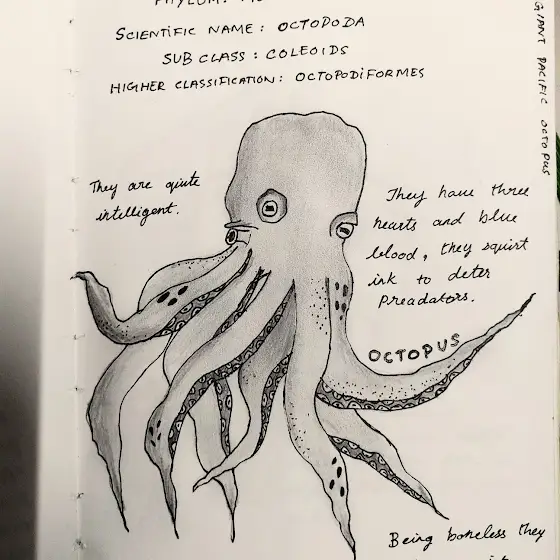 PHYLUM:
SCIENTIFIC NAME : OCTOPODA
SUB CLASS : COLEOIDS
HIGHER CLASSIFICATION : OCTOPODIFORMES
GIANT PACIFIC OCTOPUS
They are qiute
intelligent.
They have three
hearts and blue
blood, they squirt
ink to deter
Preadators.
OCTOPUS
Being boneless they